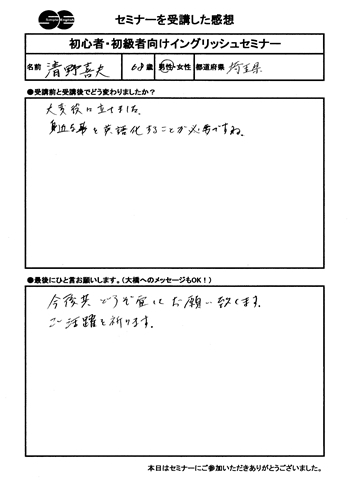 セミナーを受講した感想
初心者・初級者向けイングリッシュセミナー
名前 清野喜夫 68歳 男性・女性 都道府県 埼玉県
●受講前と受講後でどう変わりましたか？
大変役に立てました。
身近な事を英語化することが必要ですね。
●最後にひと言お願いします。(大橋へのメッセージもOK！)
今後共どうぞ宜しくお願い致します。
ご活躍を祈ります。
本日はセミナーにご参加いただきありがとうございました。